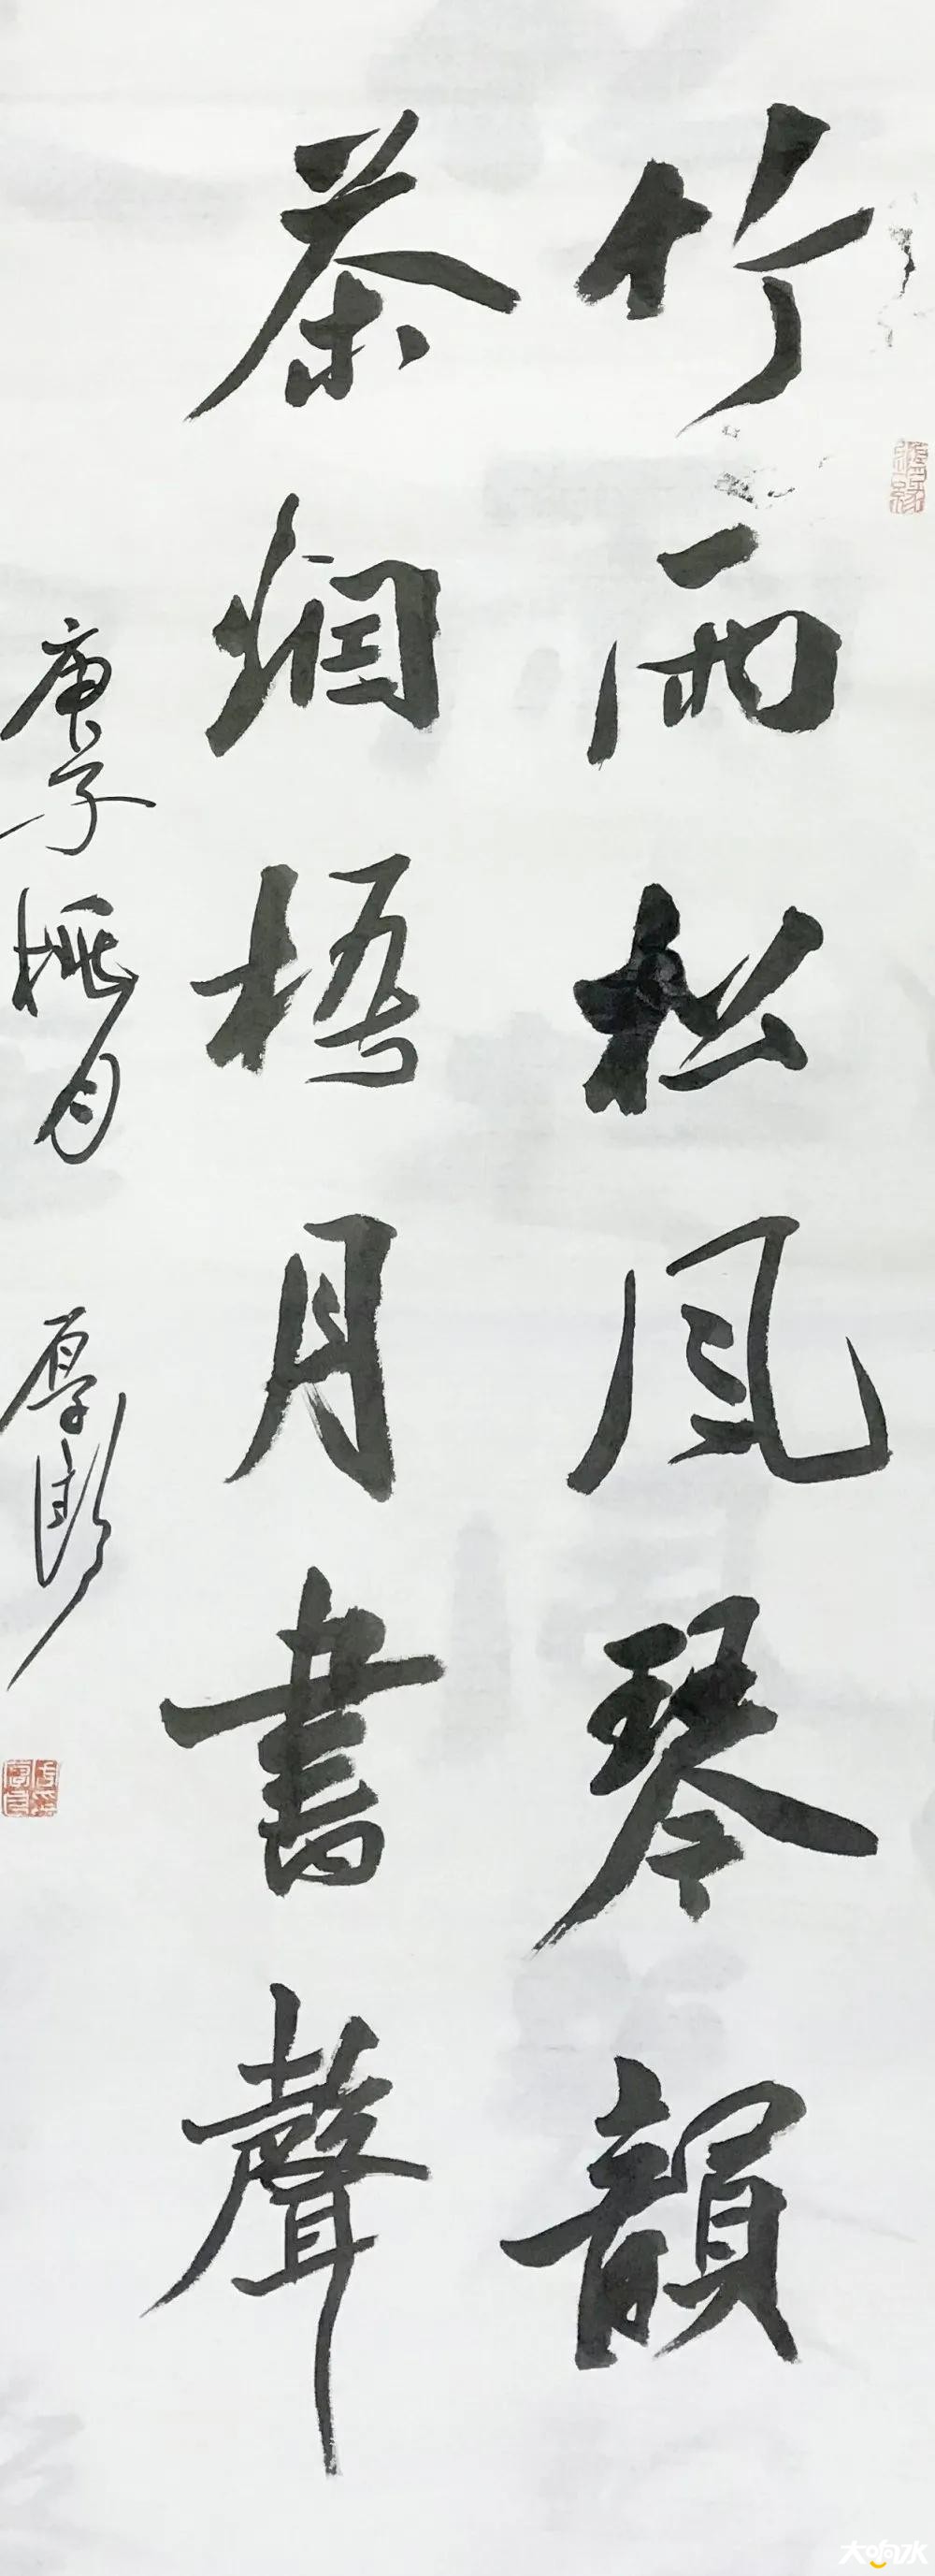 竹雨松風琴韻
茶烟梧月書聲
庚子桃月 厚彬
大响水